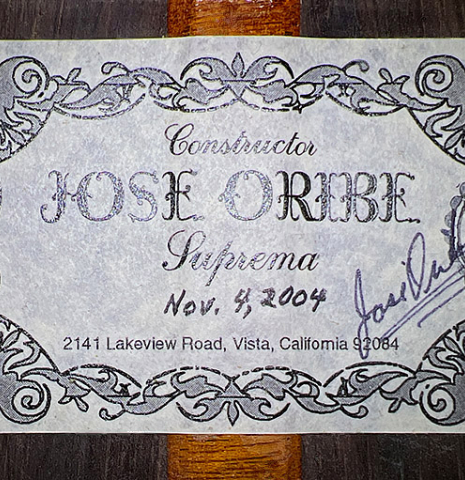 Constructor
JOSE ORIBE
Suprema
Nov. 4, 2004
Jose Oribe
2141 Lakeview Road, Vista, California 92084